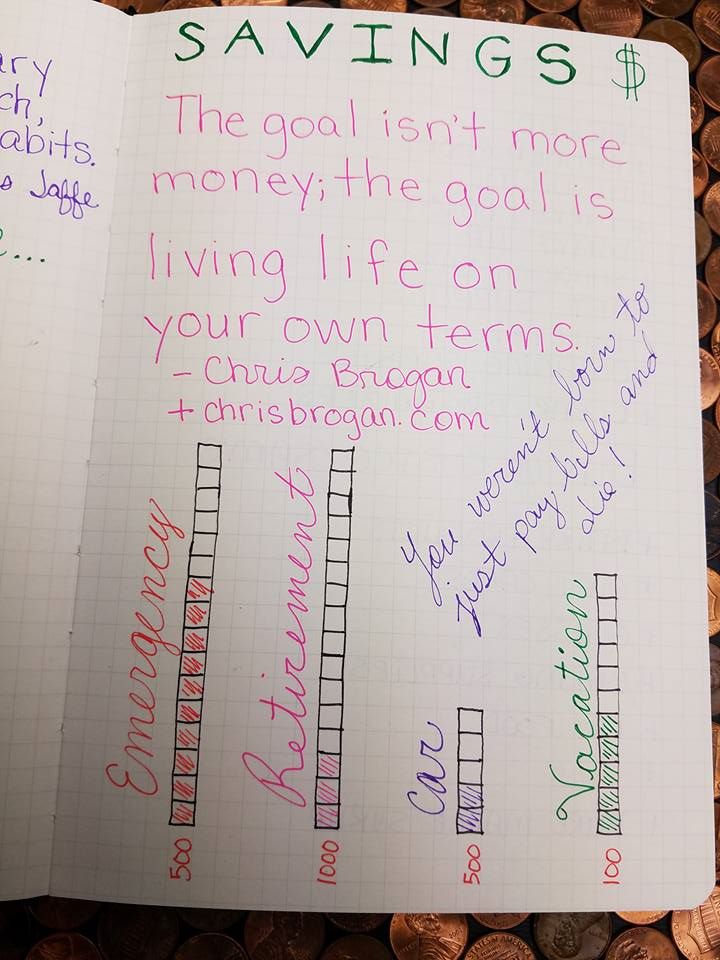 ary
ch,
abits.
Jaffe
...
SAVINGS $
The goal isn't more
money; the goal is
living life on
your own terms.
- Chris Brogan
+ chrisbrogan.com
You weren't born to
just pay bills and
die!
Emergency
500
Retirement
1000
Car
500
Vacation
100